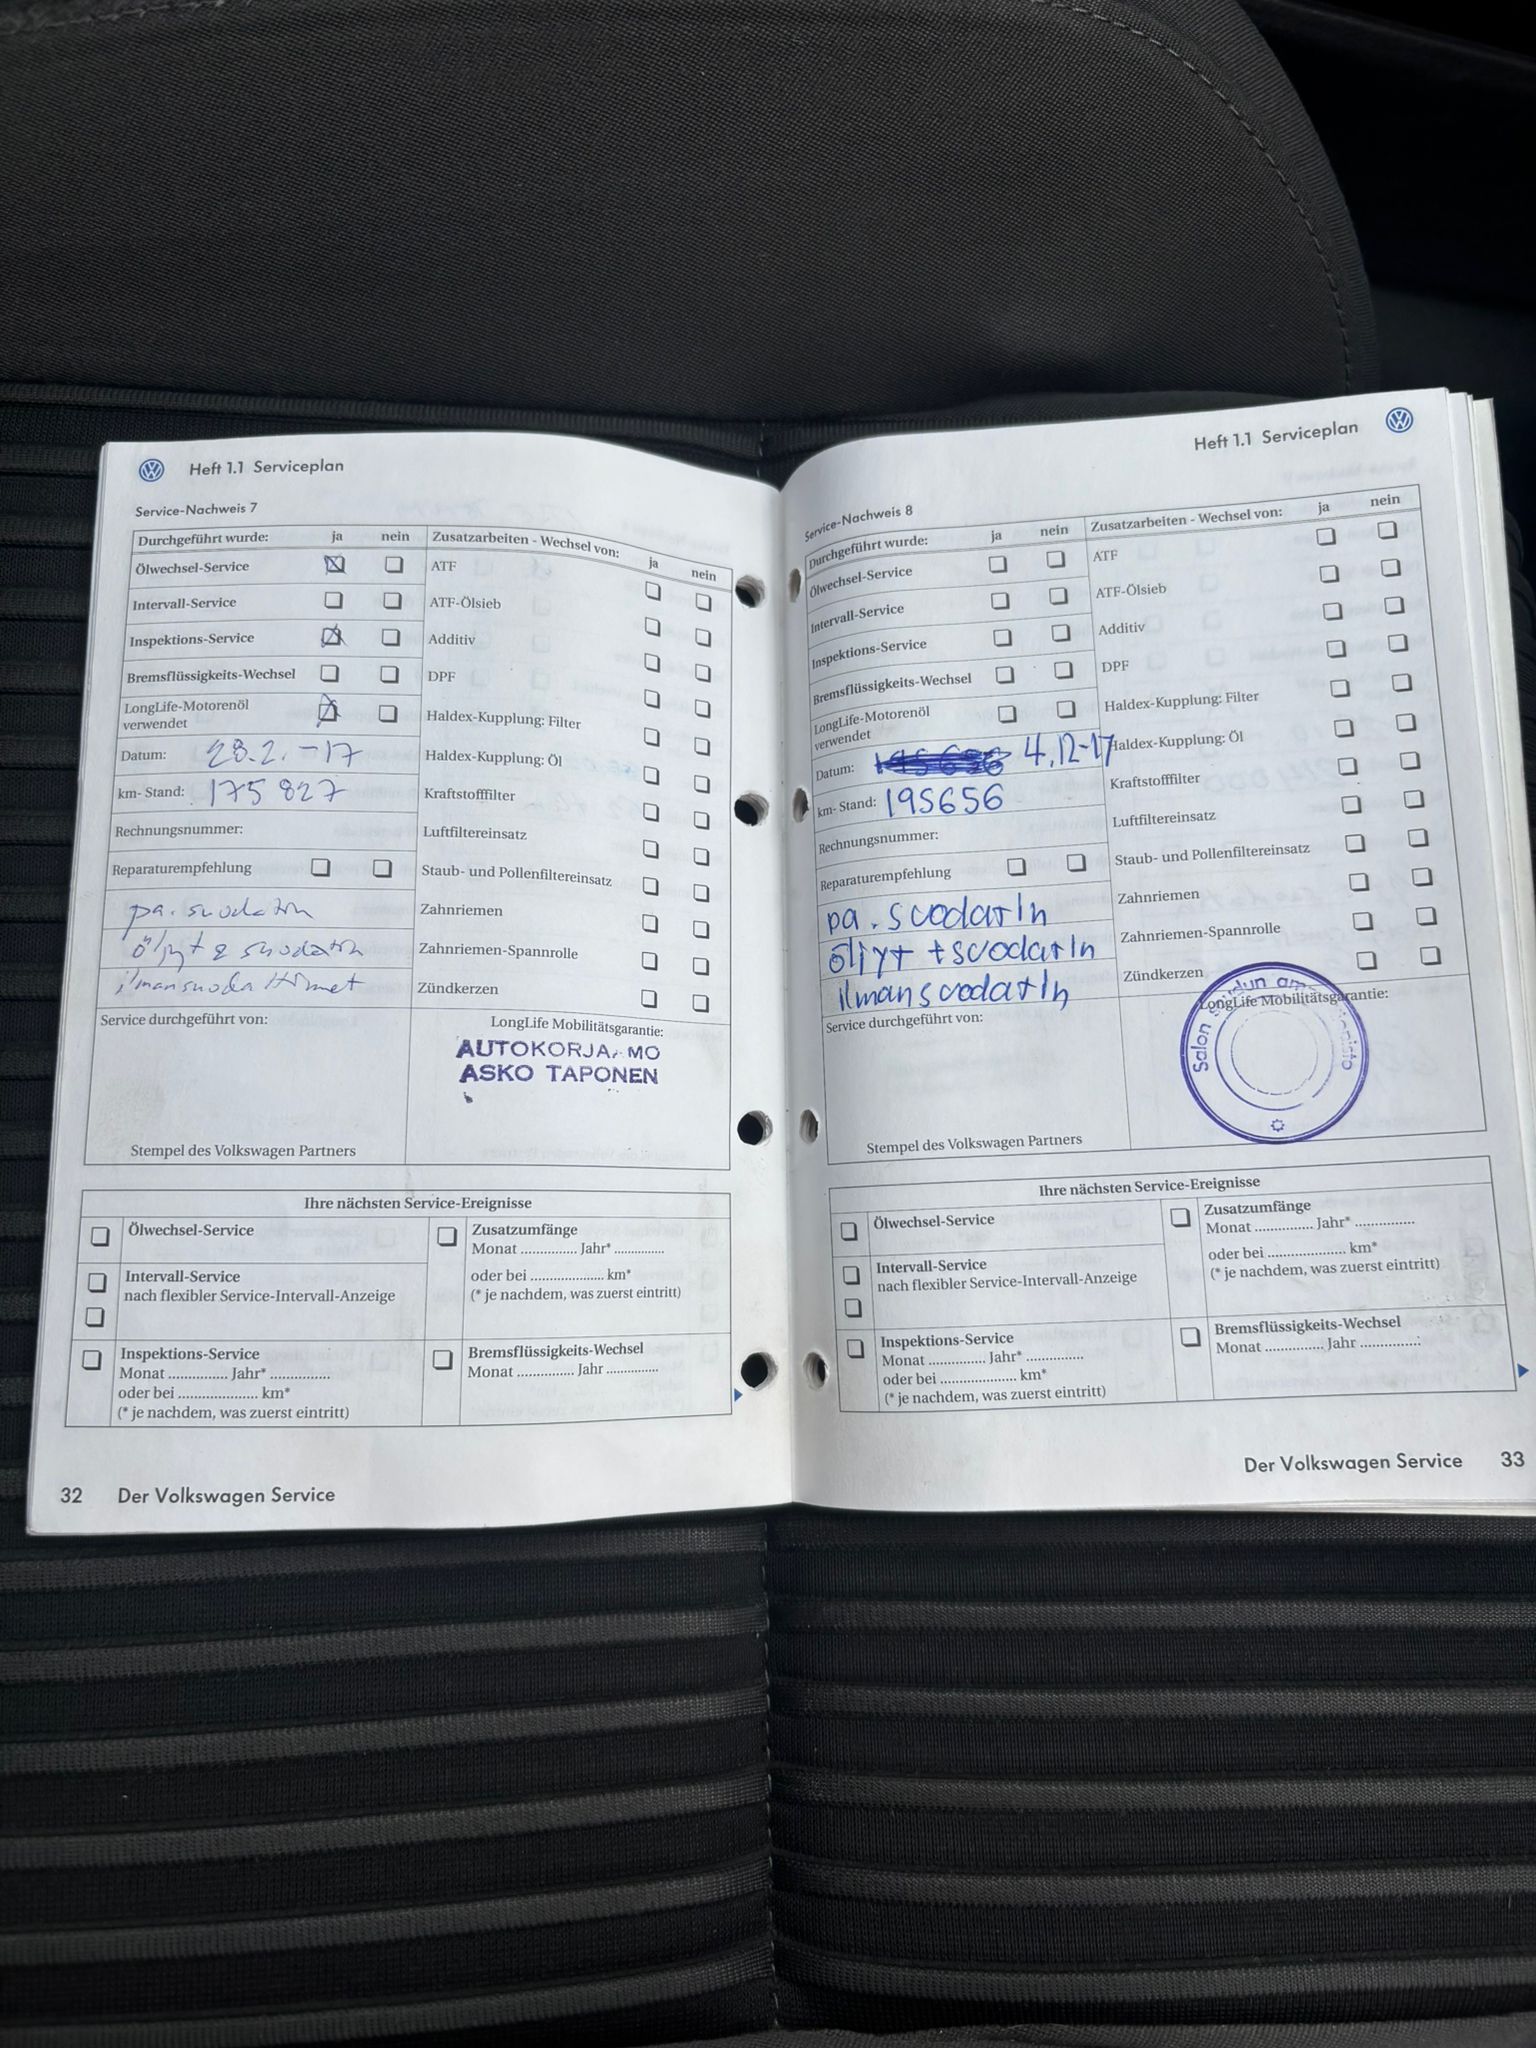 Heft 1.1 Serviceplan
Service-Nachweis 7
Durchgeführt wurde: ja nein
Ölwechsel-Service
Intervall-Service
Inspektions-Service
Bremsflüssigkeits-Wechsel
LongLife-Motorenöl
verwendet
Datum: 28.2.-17
km- Stand: 175 827
Rechnungsnummer:
Reparaturempfehlung
pa. suodatin
öljyt & suodatin
Service durchgeführt von:
Stempel des Volkswagen Partners
Zusatzarbeiten - Wechsel von: ja nein
ATF
ATF-Ölsieb
Additiv
DPF
Haldex-Kupplung: Filter
Haldex-Kupplung: Öl
Kraftstofffilter
Luftfiltereinsatz
Staub- und Pollenfiltereinsatz
Zahnriemen
Zahnriemen-Spannrolle
Zündkerzen
LongLife Mobilitätsgarantie:
AUTOKORJAAMO
ASKO TAPONEN
Ihre nächsten Service-Ereignisse
Ölwechsel-Service
Intervall-Service
nach flexibler Service-Intervall-Anzeige
Inspektions-Service
Monat ............... Jahr* ...............
oder bei .................... km*
(* je nachdem, was zuerst eintritt)
Zusatzumfänge
Monat .............. Jahr* .............
oder bei .................... km*
(* je nachdem, was zuerst eintritt)
Bremsflüssigkeits-Wechsel
Monat .............. Jahr ..............
32 Der Volkswagen Service
Heft 1.1 Serviceplan
Service-Nachweis 8
Durchgeführt wurde: ja nein
Ölwechsel-Service
Intervall-Service
Inspektions-Service
Bremsflüssigkeits-Wechsel
LongLife-Motorenöl
verwendet
Datum: 4.12-17
km- Stand: 195656
Rechnungsnummer:
Reparaturempfehlung
pa. suodatin
öljyt + suodatin
ilmansuodatin
Service durchgeführt von:
Stempel des Volkswagen Partners
Zusatzarbeiten - Wechsel von: ja nein
ATF
ATF-Ölsieb
Additiv
DPF
Haldex-Kupplung: Filter
Haldex-Kupplung: Öl
Kraftstofffilter
Luftfiltereinsatz
Staub- und Pollenfiltereinsatz
Zahnriemen
Zahnriemen-Spannrolle
Zündkerzen
LongLife Mobilitätsgarantie:
Salon seudun
Ihre nächsten Service-Ereignisse
Ölwechsel-Service
Intervall-Service
nach flexibler Service-Intervall-Anzeige
Inspektions-Service
Monat ............... Jahr* ..............
oder bei .................... km*
(* je nachdem, was zuerst eintritt)
Zusatzumfänge
Monat ............... Jahr* ...............
oder bei .................... km*
(* je nachdem, was zuerst eintritt)
Bremsflüssigkeits-Wechsel
Monat ............... Jahr ...............
Der Volkswagen Service 33